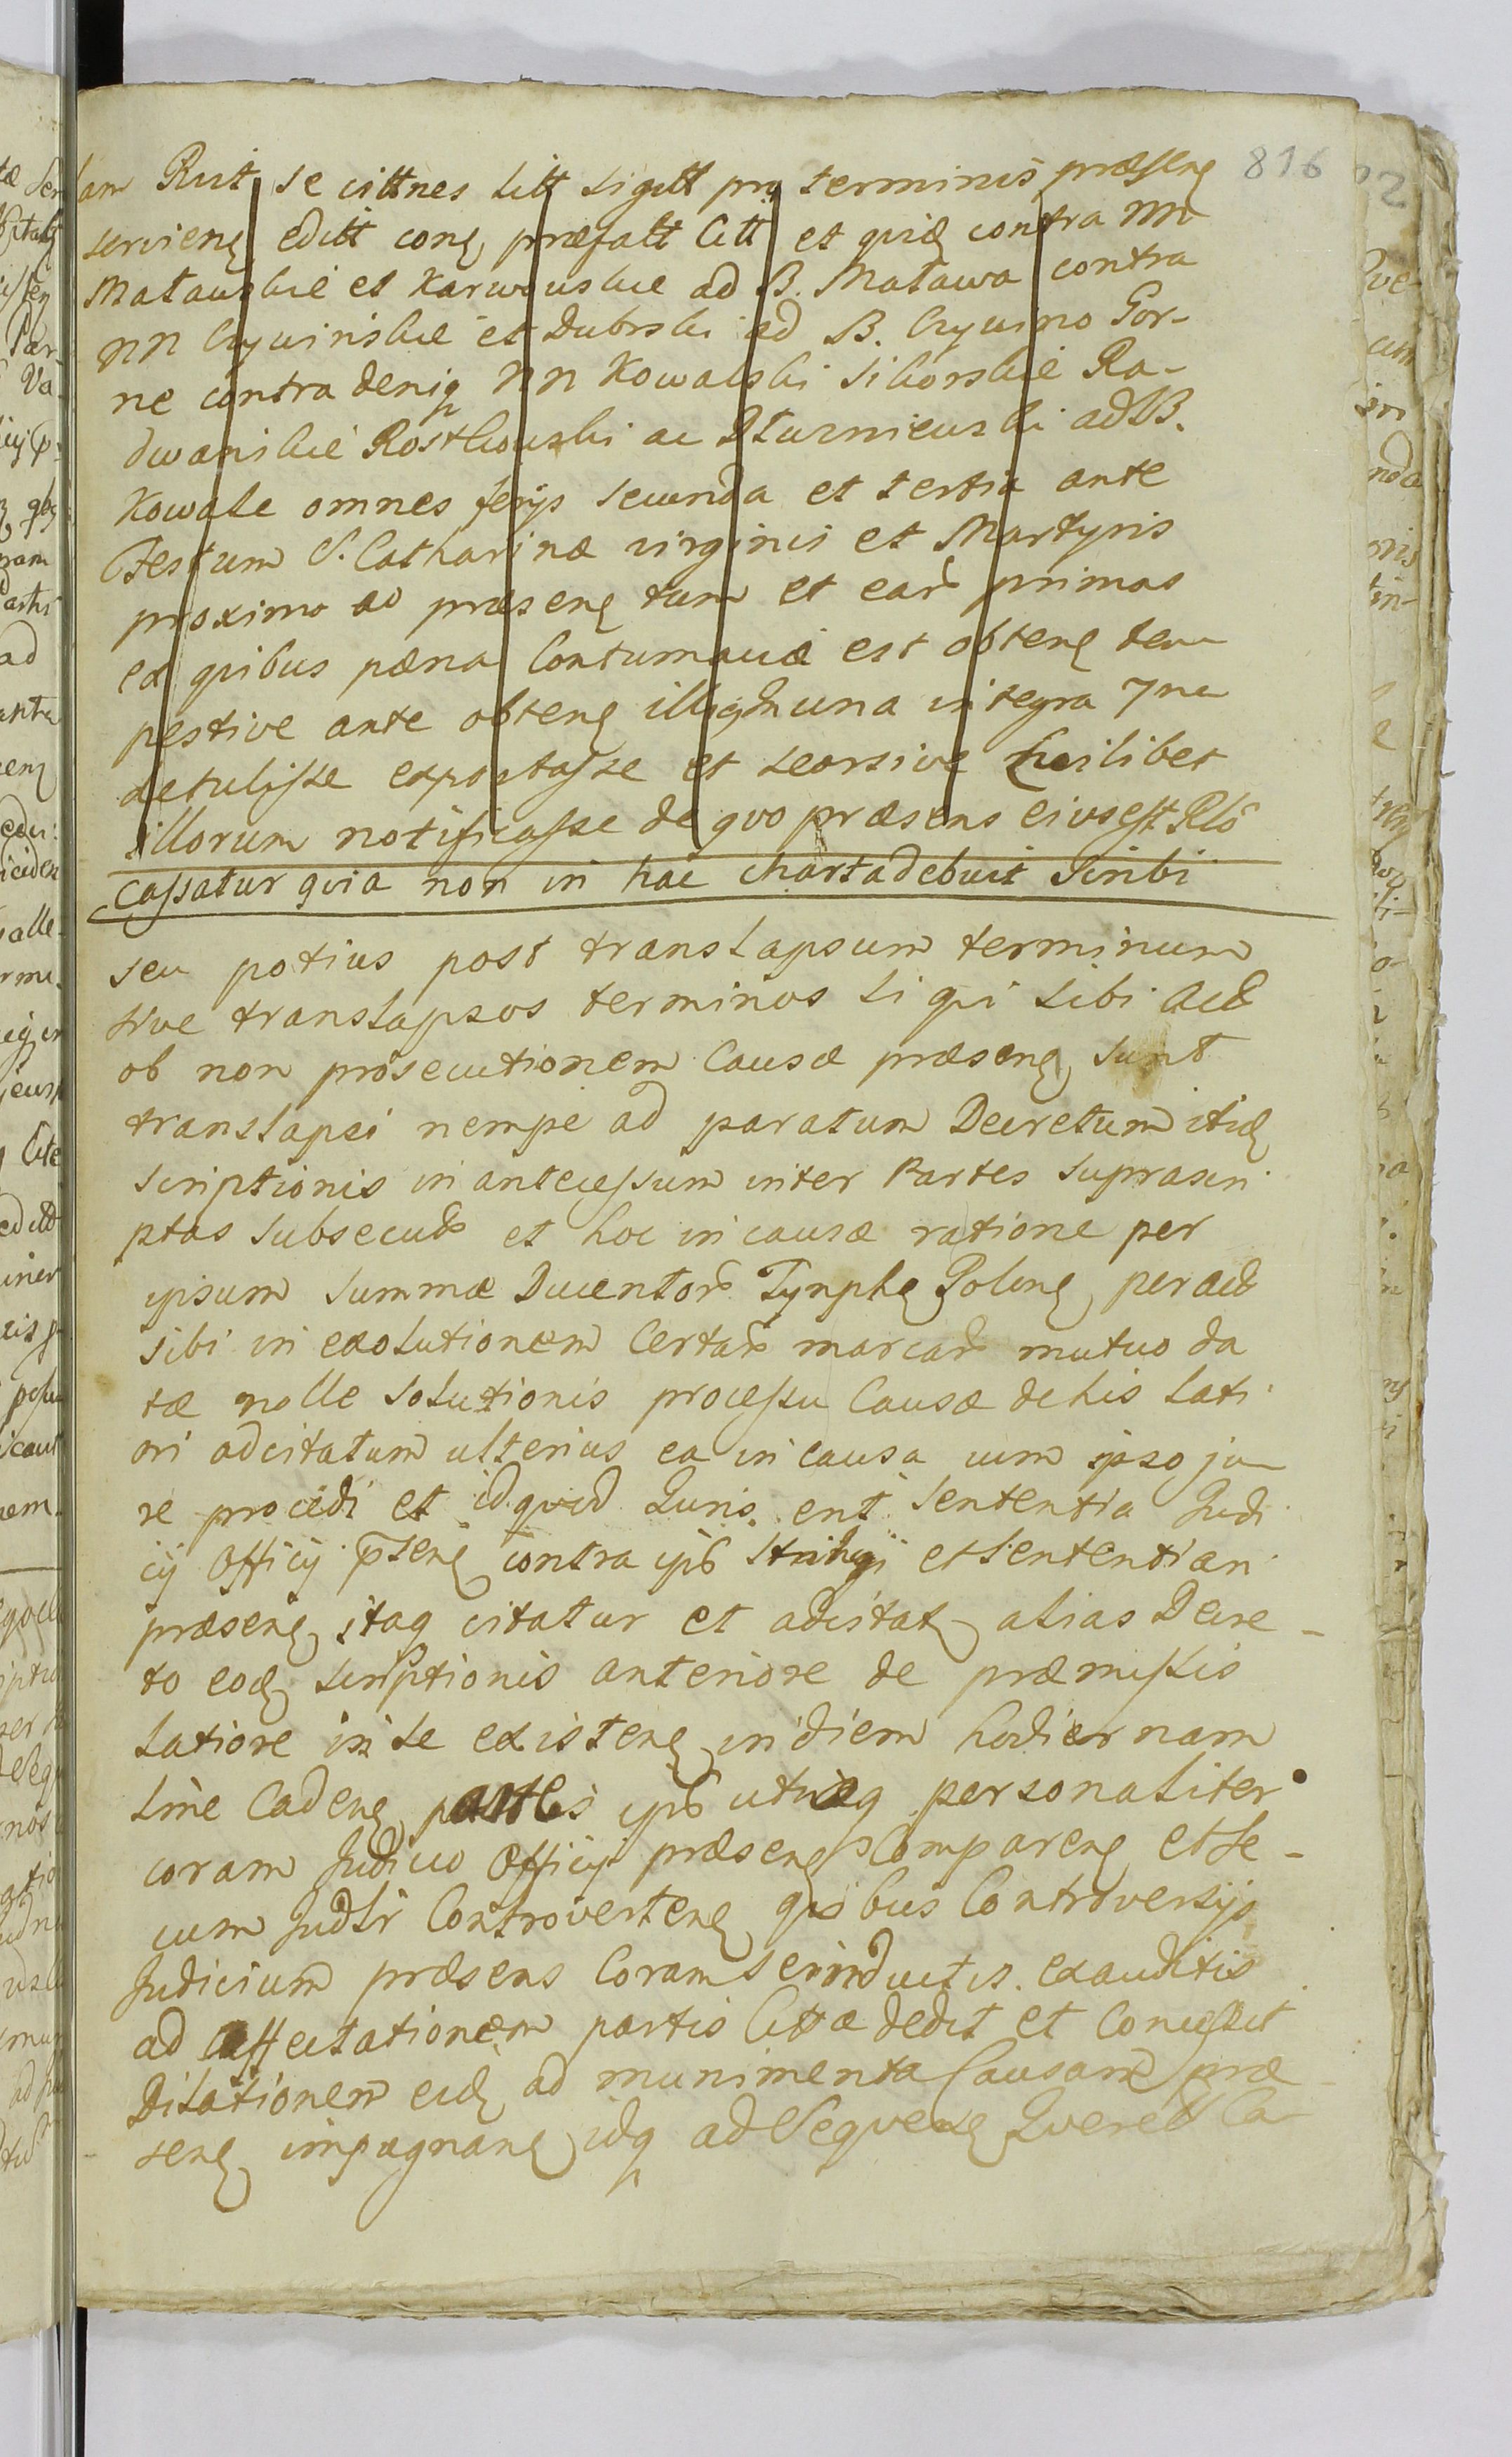 816
Rut se cittnes litt sigill pro terminis præsenę
servienę editt conę præfatt Citt et quidę contra NN
Matauskie et Karwouskie ad B. Matawa contra
NN Czywinskie et Dubrski ad B. Czywino Gor-
ne contra deniq NN Kowalski Sikorskie Ra-
dwanskie Rostkouski ac Sturnieuski ad B.
Kowale omnes ferijs secunda et tertia ante
Festum S. Catharinæ virginis et Martyris
proximo ad præsenę tum et eard primas
ex quibus pæna Contumaciæ est obtenę tem
pestive ante obtenę una integra 7na
detulisse exportasse et seorsive cuilibet
illorum notificasse de quo præsens eius est Rlõ
Cassatur quia non in hac charta debuit scribi
seu potius post translapsum terminum
sive translapsos terminos si qui sibi actt
ob non prosecutionem Causæ præsenę sunt
translapsi nempe ad paratum Decretum itidę
scriptionis in antecessum inter Partes suprascri
ptas subsecutt et hoc in causæ ratione per
ipsum summæ Ducentord Tynphę Polonę per actt
sibi in exolutionem Certard marcard mutuo da
tæ nolle solutionis processu Causæ de his lati
ori adcitatum ulterius ea in causa cum ipso ju
re procedi et id quid Juris erit sententia Judi
cij Officij p̄senę contra ipso strihgi et sententiari
præsenę itaq citatur et adcitatę alias Decre-
to eodę scriptionis anteriore de præmissis
latiore in se existenę in diem hodiernam
sine Cadenę partes ipso utraq personaliter
coram Judicio Officij præsenę Comparenę et se-
cum Judlr Controvertenę quibus Controversijs
Judicium præsens Coram se inductis exauditis
ad affectationem partis Cittæ dedit et Concessit
Dilationem eidę ad munimenta Causard præ
senę impugnanę idq ad Sequenę Querell Ca